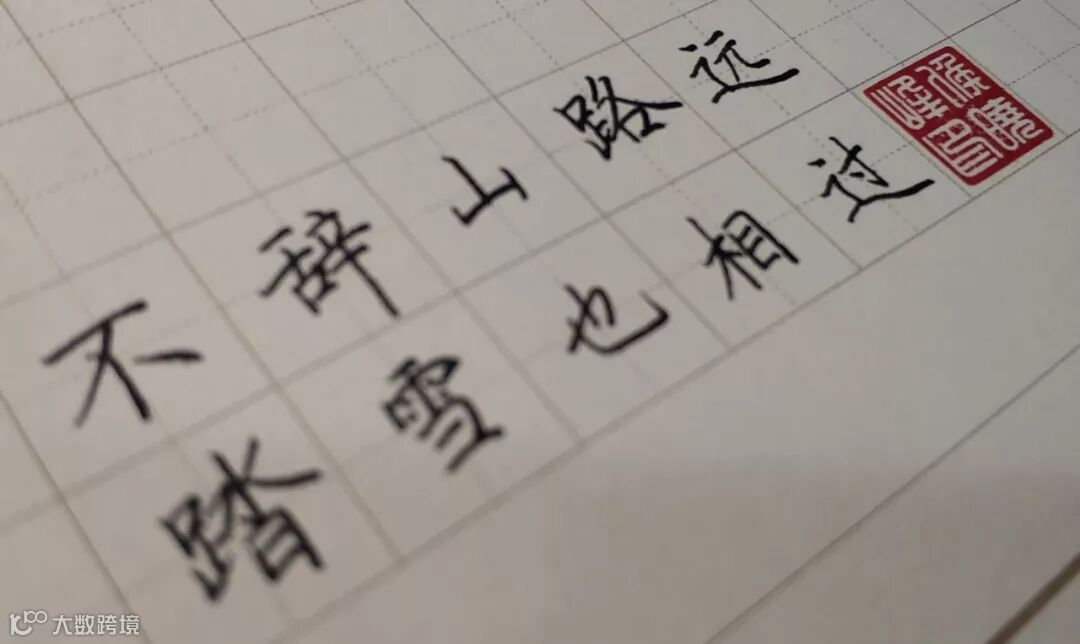 不辞山路远
踏雪也相过
大数跨境